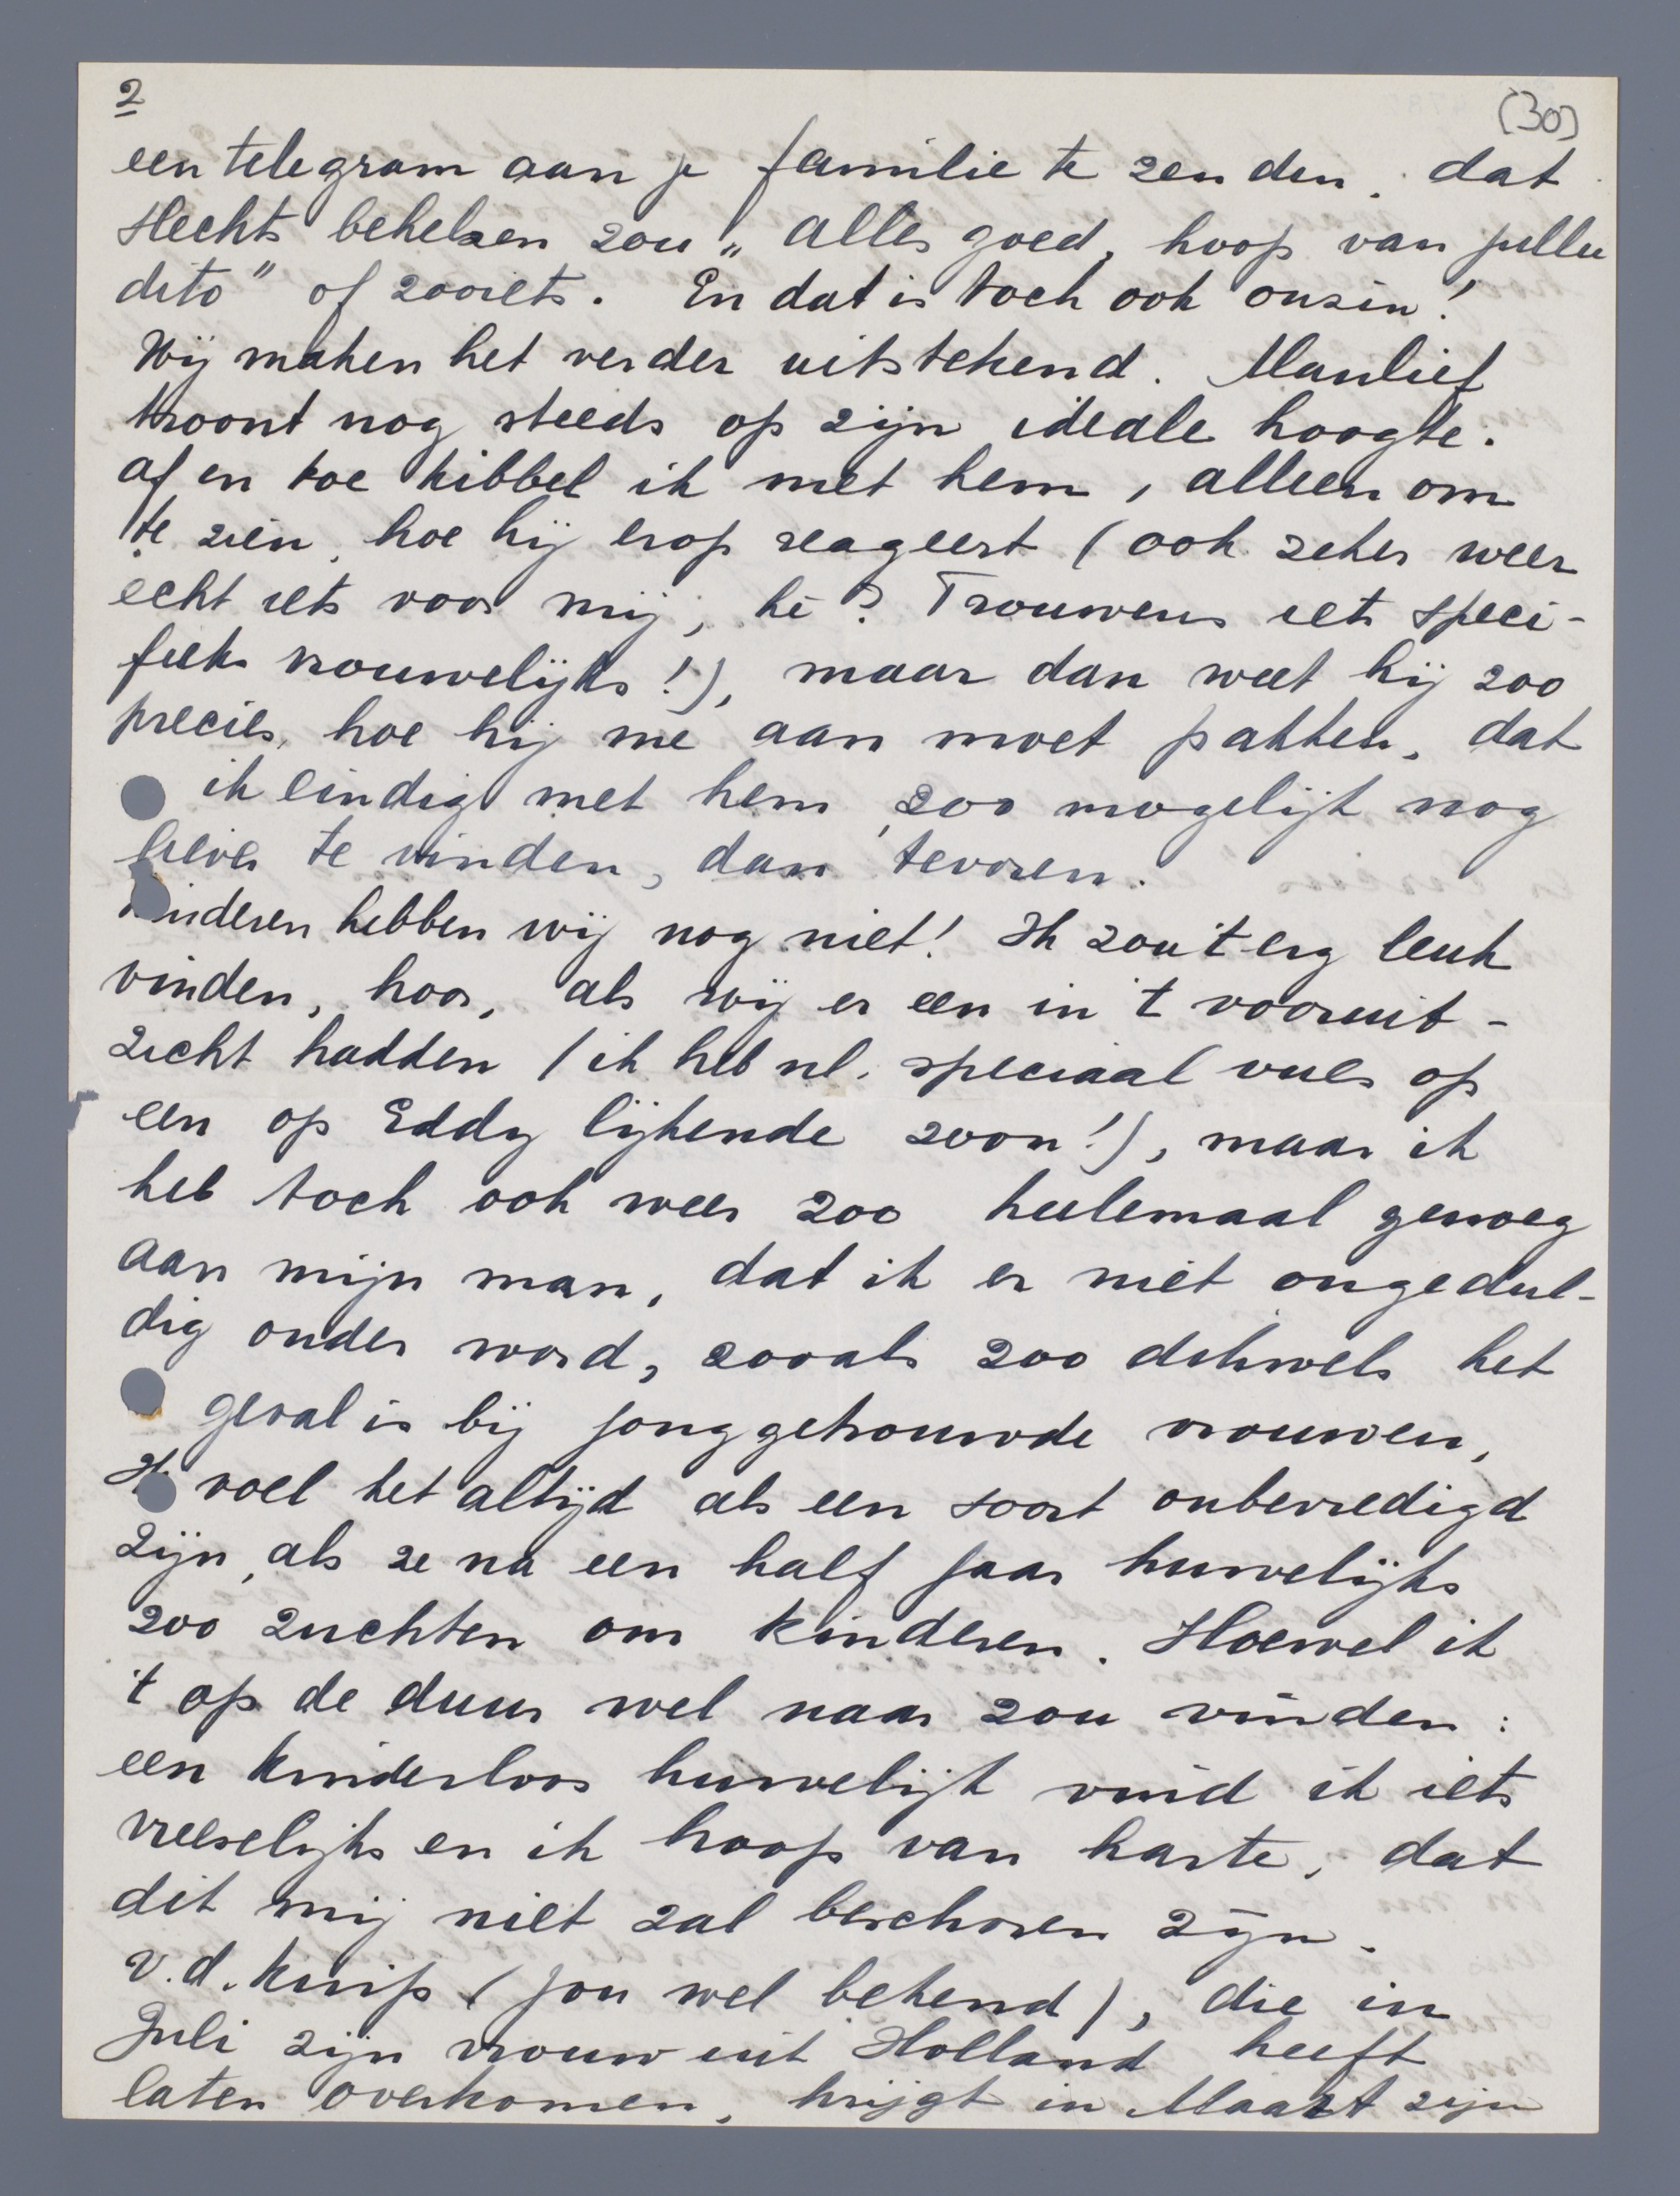 2
(30)
een telegram aan je familie te zenden, dat
slechts behelzen zou „alles goed, hoop van jullie
dito" of zooiets. En dat is toch ook onzin!
Wij maken het verder uitstekend. Manlief
troont nog steeds op zijn ideale hoogte.
af en toe kibbel ik met hem, alleen om
te zien, hoe hij erop reageert (ook zeker weer
echt iets voor mij, hè? Trouwens iets speci-
fieks vrouwelijks!), maar dan weet hij zoo
precies, hoe hij me aan moet pakken, dat
ik eindig met hem, zoo mogelijk nog
liever te vinden, dan tevoren.
Kinderen hebben wij nog niet! Ik zou 't erg leuk
vinden, hoor, als wij er een in 't vooruit-
zicht hadden (ik heb nl. speciaal vues op
een op Eddy lijkende zoon!), maar ik
heb toch ook weer zoo heelemaal genoeg
aan mijn man, dat ik er niet ongedul-
dig onder word, zooals zoo dikwels het
geval is bij jonggetrouwde vrouwen,
Ik voel het altijd als een soort onbevredigd
zijn, als ze na een half jaar huwelijks
zoo zuchten om kinderen. Hoewel ik
't op de duur wel naar zou vinden:
een kinderloos huwelijk vind ik iets
vreeselijks en ik hoop van harte, dat
dit mij niet zal beschoren zijn.
v.d. Kuip (jou wel bekend), die in
Juli zijn vrouw uit Holland heeft
laten overkomen, krijgt in Maart zijn